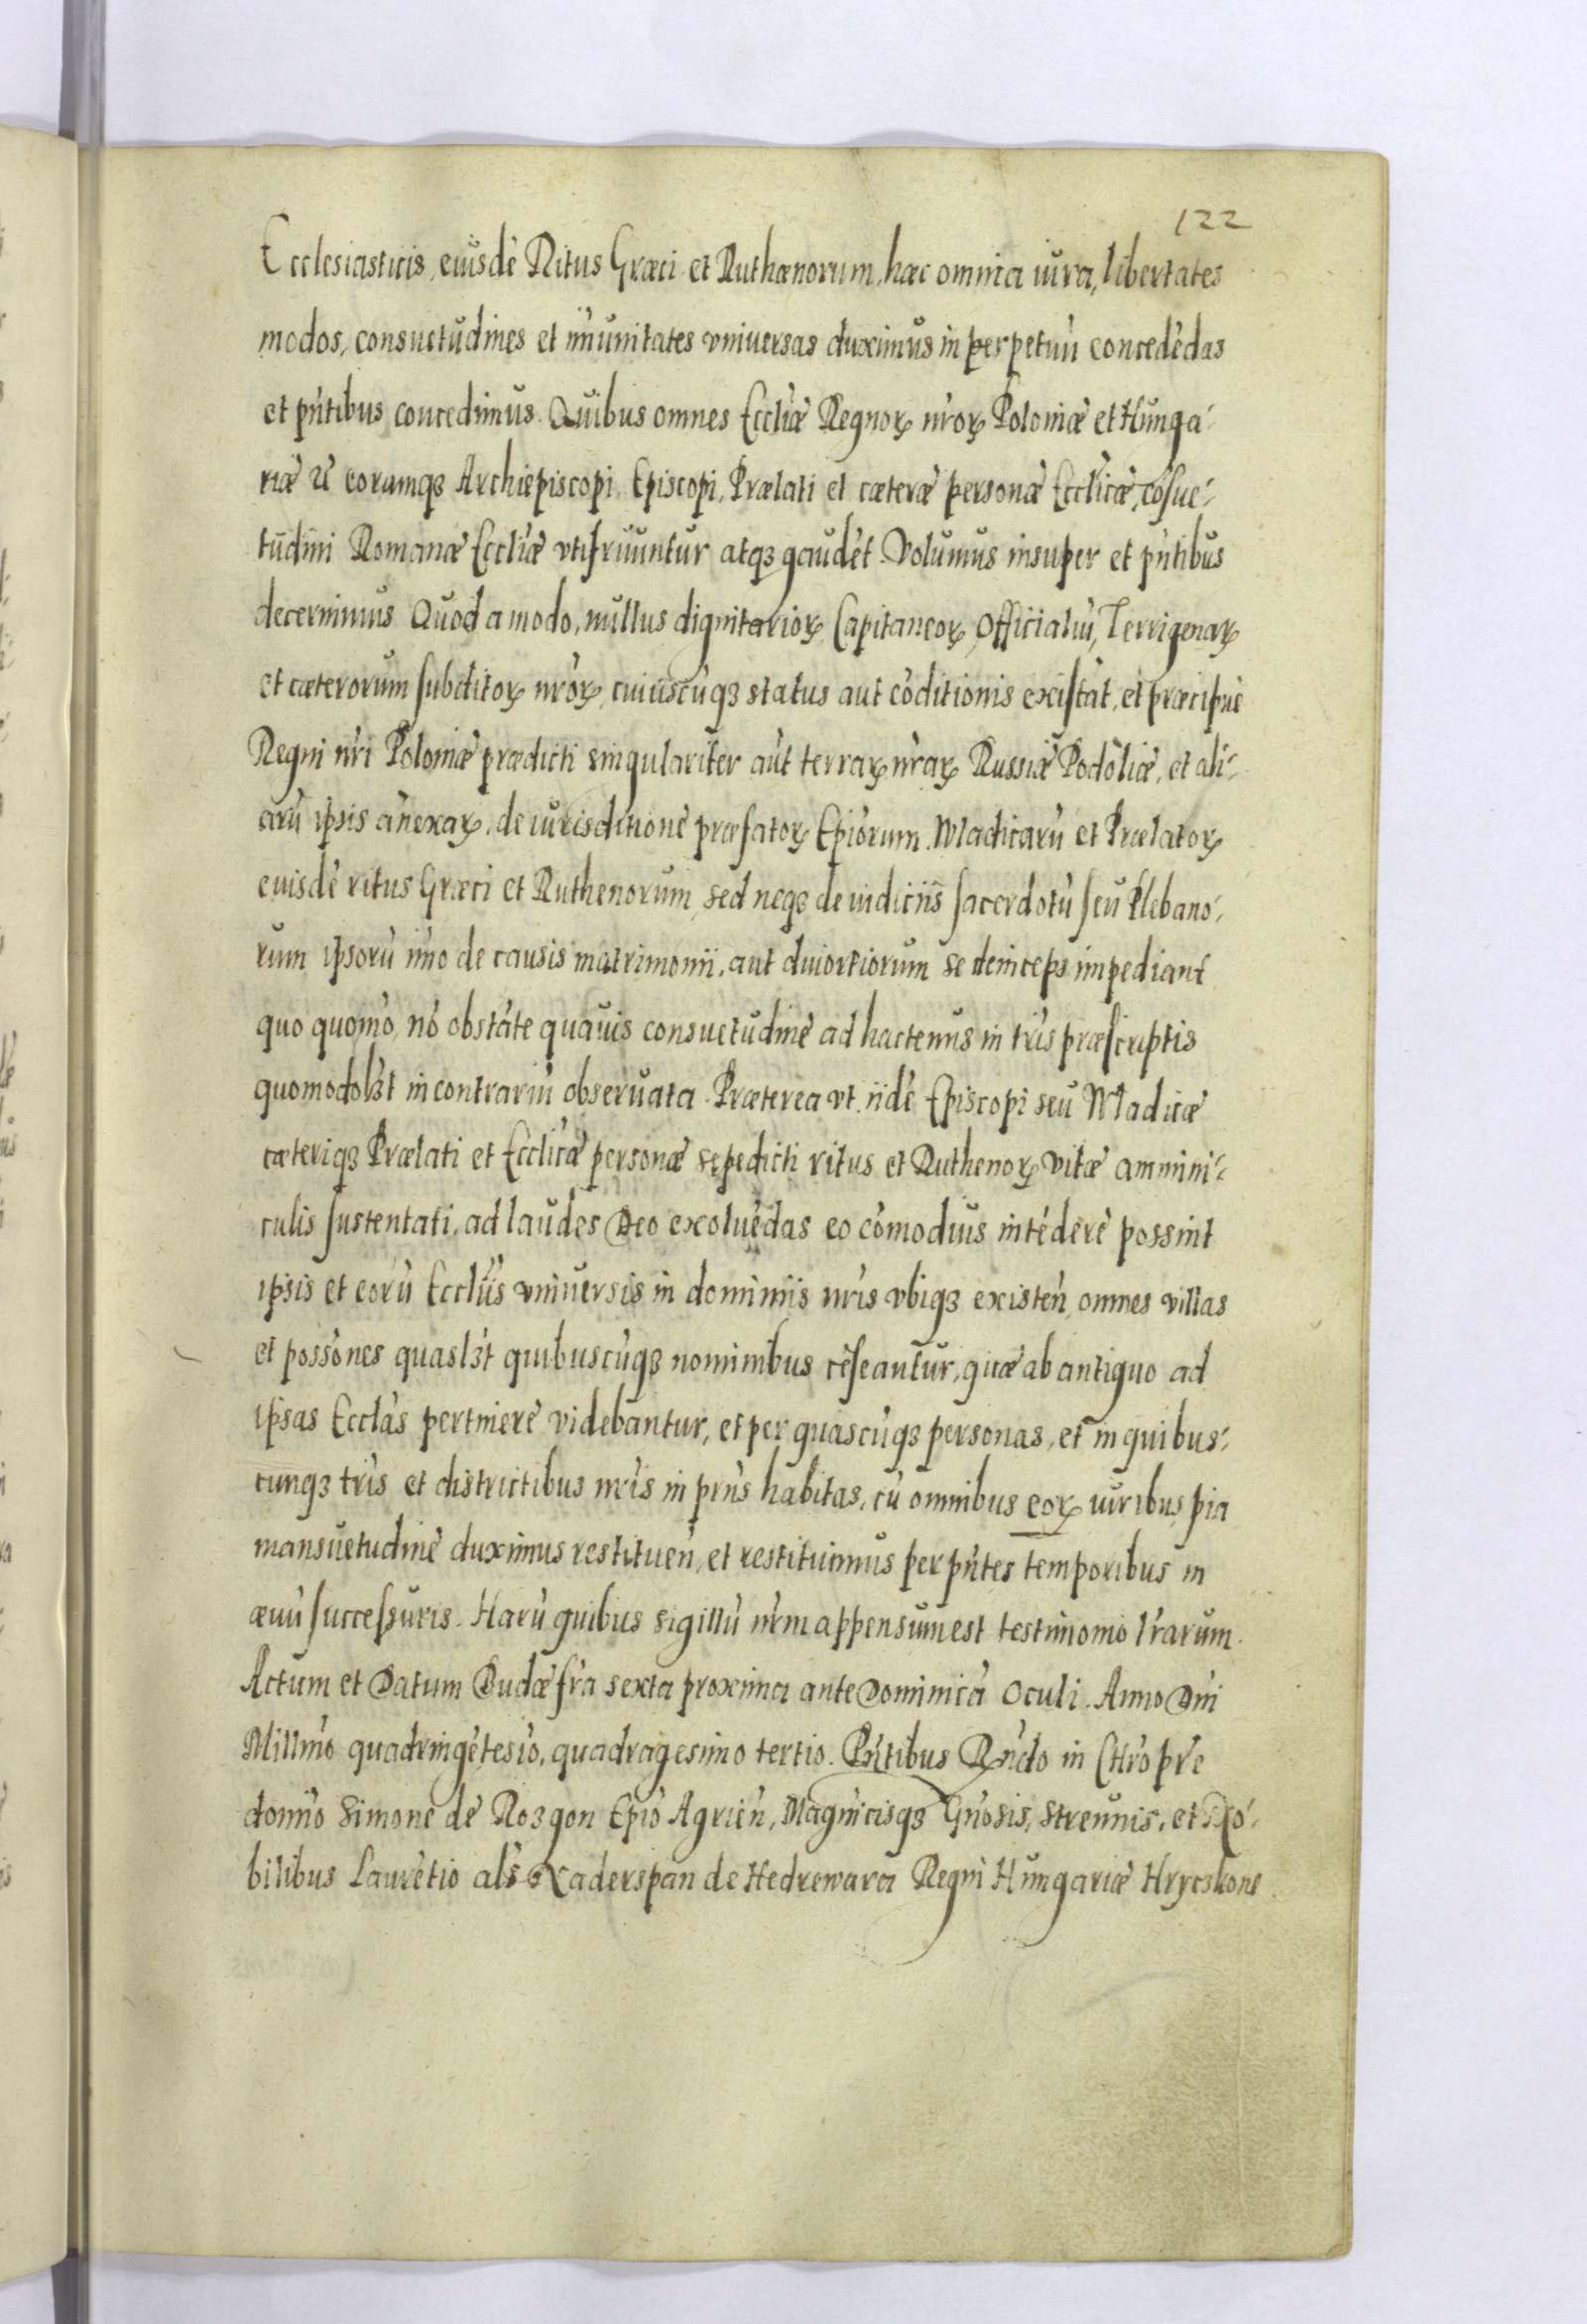 122
Ecclesiasticis, eiusdē Ritus Græci et Ruthænorum, hæc omnia iura, libertates
modos, consuetudines et iḿunitates vniuersas duximus in perpetuū concedēdas
et pńtibus concedimus. Quibus omnes Eccliæ Regnoꝝ nŕoꝝ Poloniæ et Hunga-
riæ &c eorumqꝫ Archiepiscopi, Episcopi, Prælati et cæteræ personæ Ecclicæ, cōsue-
tudini Romanæ Eccliæ vtifruuntur atqꝫ gaudēt. Volumus insuper et pńtibus
decernimus Quod a modo, nullus dignitarioꝝ Capitaneoꝝ, Officialiū, Terrigenaꝝ
et cæterorum subditoꝝ nŕoꝝ, cuiuscūqꝫ status aut cōditionis existāt, et præcipuè
Regni nŕi Poloniæ prædicti singulariter aūt terraꝝ nŕaꝝ Russiæ Podoliæ, et ali-
arū ipsis añexaꝝ, de iurisditione præfatoꝝ Epiorum. Wladicarū et Prælatoꝝ
euisdē ritus Græci et Ruthenorum, sed neqꝫ de iudiciis sacerdotū seu Plebano-
rum ipsorū iḿo de causis matrimonii, aut diuortiorum se deinceps impediant
quo quomō, nō obstāte quauis consuetudinē ad hactenus in tŕis præscriptis
quomodolꝫt in contrariū obseruata. Præterea vt iidē Episcopi seu Wladicæ
cæteriqꝫ Prælati et Ecclicæ personæ sępedicti ritus et Ruthenoꝝ vitæ ammini-
culis sustentati, ad laudes Deo exoluēdas eo cōmodius intēdere possint
ipsis et eorū Eccliis vniuersis in dominiis nŕis vbiqꝫ existeń, omnes villas
et possōnes quaslꝫt quibuscūqꝫ nominibus cēseantur, quæ ab antiquo ad
ipsas Ecclās pertinere videbantur, et per quascūqꝫ personas, et in quibus-
cunqꝫ tŕis et districtibus nŕis in pŕns habitas, cū omnibus eoꝝ iuribus pia
mansuetudinē duximus restitueń, et restituimus per pńtes temporibus in
æuū successuris. Harū quibus sigillū nŕm appensum est testimonio lŕarum.
Actum et Datum Budæ fŕa sexta proxima ante Dominicā Oculi. Anno Dńi
Millḿo quadringētesīo, quadragesimo tertio. Pńtibus Rńdo in Chŕo pŕe
domńo Simone de Rozgon Epīo Agrień, Magńicisqꝫ Gńosis, strenuis, et No-
bilibus Laurētio alŝ Naderspan de Hedrewara Regni Hungariæ Hryczkone